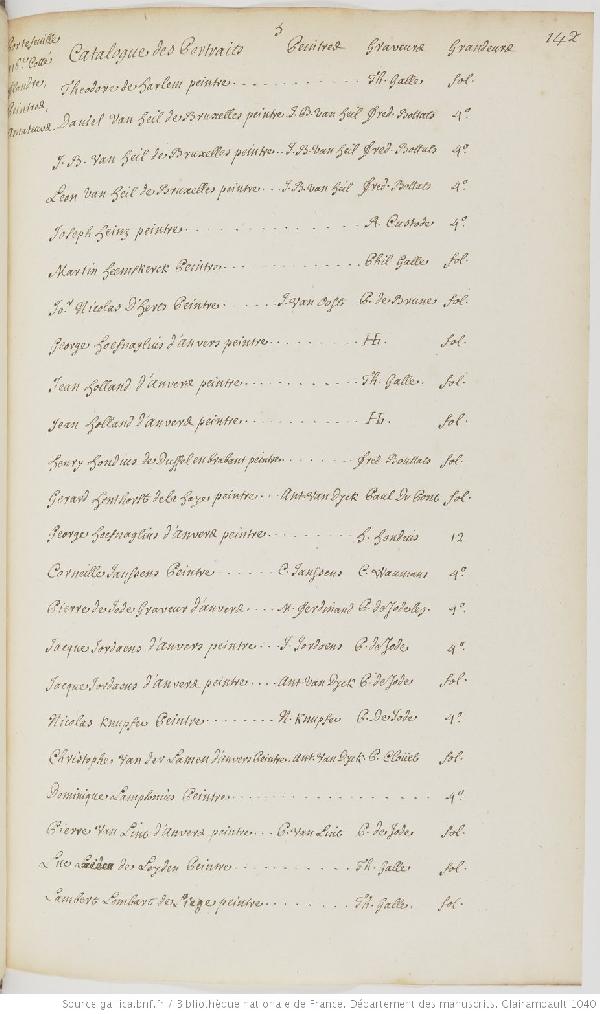 5
142
Catalogue des Portraits Peintres Graveurs Grandeurs
Portefeuille
Flandre,
Peintres
Amateurs.
Theodore de Harlem peintre ........ Th. Galle fol.
Daniel Van heil de Bruxelles peintre J. B. van heil Fred. Bottats 4º.
J. B. Van heil de Bruxelles peintre .. J. B. van heil Fred. Bottats 4º.
Leon van heil de Bruxelles peintre ... J. B. van heil Fred. Bottats 4º.
Joseph heinz peintre ............ A. Custode 4º.
Martin heemskerck Peintre ........... Phil Galle fol.
Jo. Nicolas d'herts Peintre ...... J. van Oost P. de Brune fol.
George hoefnaglius d'anvers peintre ........ H. fol.
Jean holland d'anvers peintre .......... Th. Galle. fol.
Jean holland d'anvers peintre .......... H. fol.
henry hondius de Duffel en brabant peintre ...... Fred Bouttats fol.
Gerard honthorst de la haye peintre ... Ant. van Dyck Paul Du Pont fol.
George hoefnaglius d'anvers peintre ........ h. hondius 12
Corneille Janssens Peintre ....... C. Janssens C. Waumans 4º.
Pierre de Jode Graveur d'anvers .... N. Ferdinand P. de Jode 4º.
Jacque Jordaens d'anvers peintre ... J. Jordaens P. de Jode 4º.
Jacque Jordaens d'anvers peintre ... Ant. van Dyck P. de Jode fol.
Nicolas Knupfer Peintre ........ N. Knupfer P. De Jode 4º.
Christophe van der Lamen d'anvers Peintre. Ant. van Dyck P. Cloüet fol.
Dominique Lampsonius Peintre .................. 4º.
Pierre Van Lint d'anvers peintre ... P. van Lint P. de Jode fol.
Luc de Leyden Peintre ........... Th. Galle fol.
Lambert Lombart de Liege peintre ........ Th. Galle. fol.
Source gallica.bnf.fr / Bibliothèque nationale de France. Département des manuscrits. Clairambault 1040